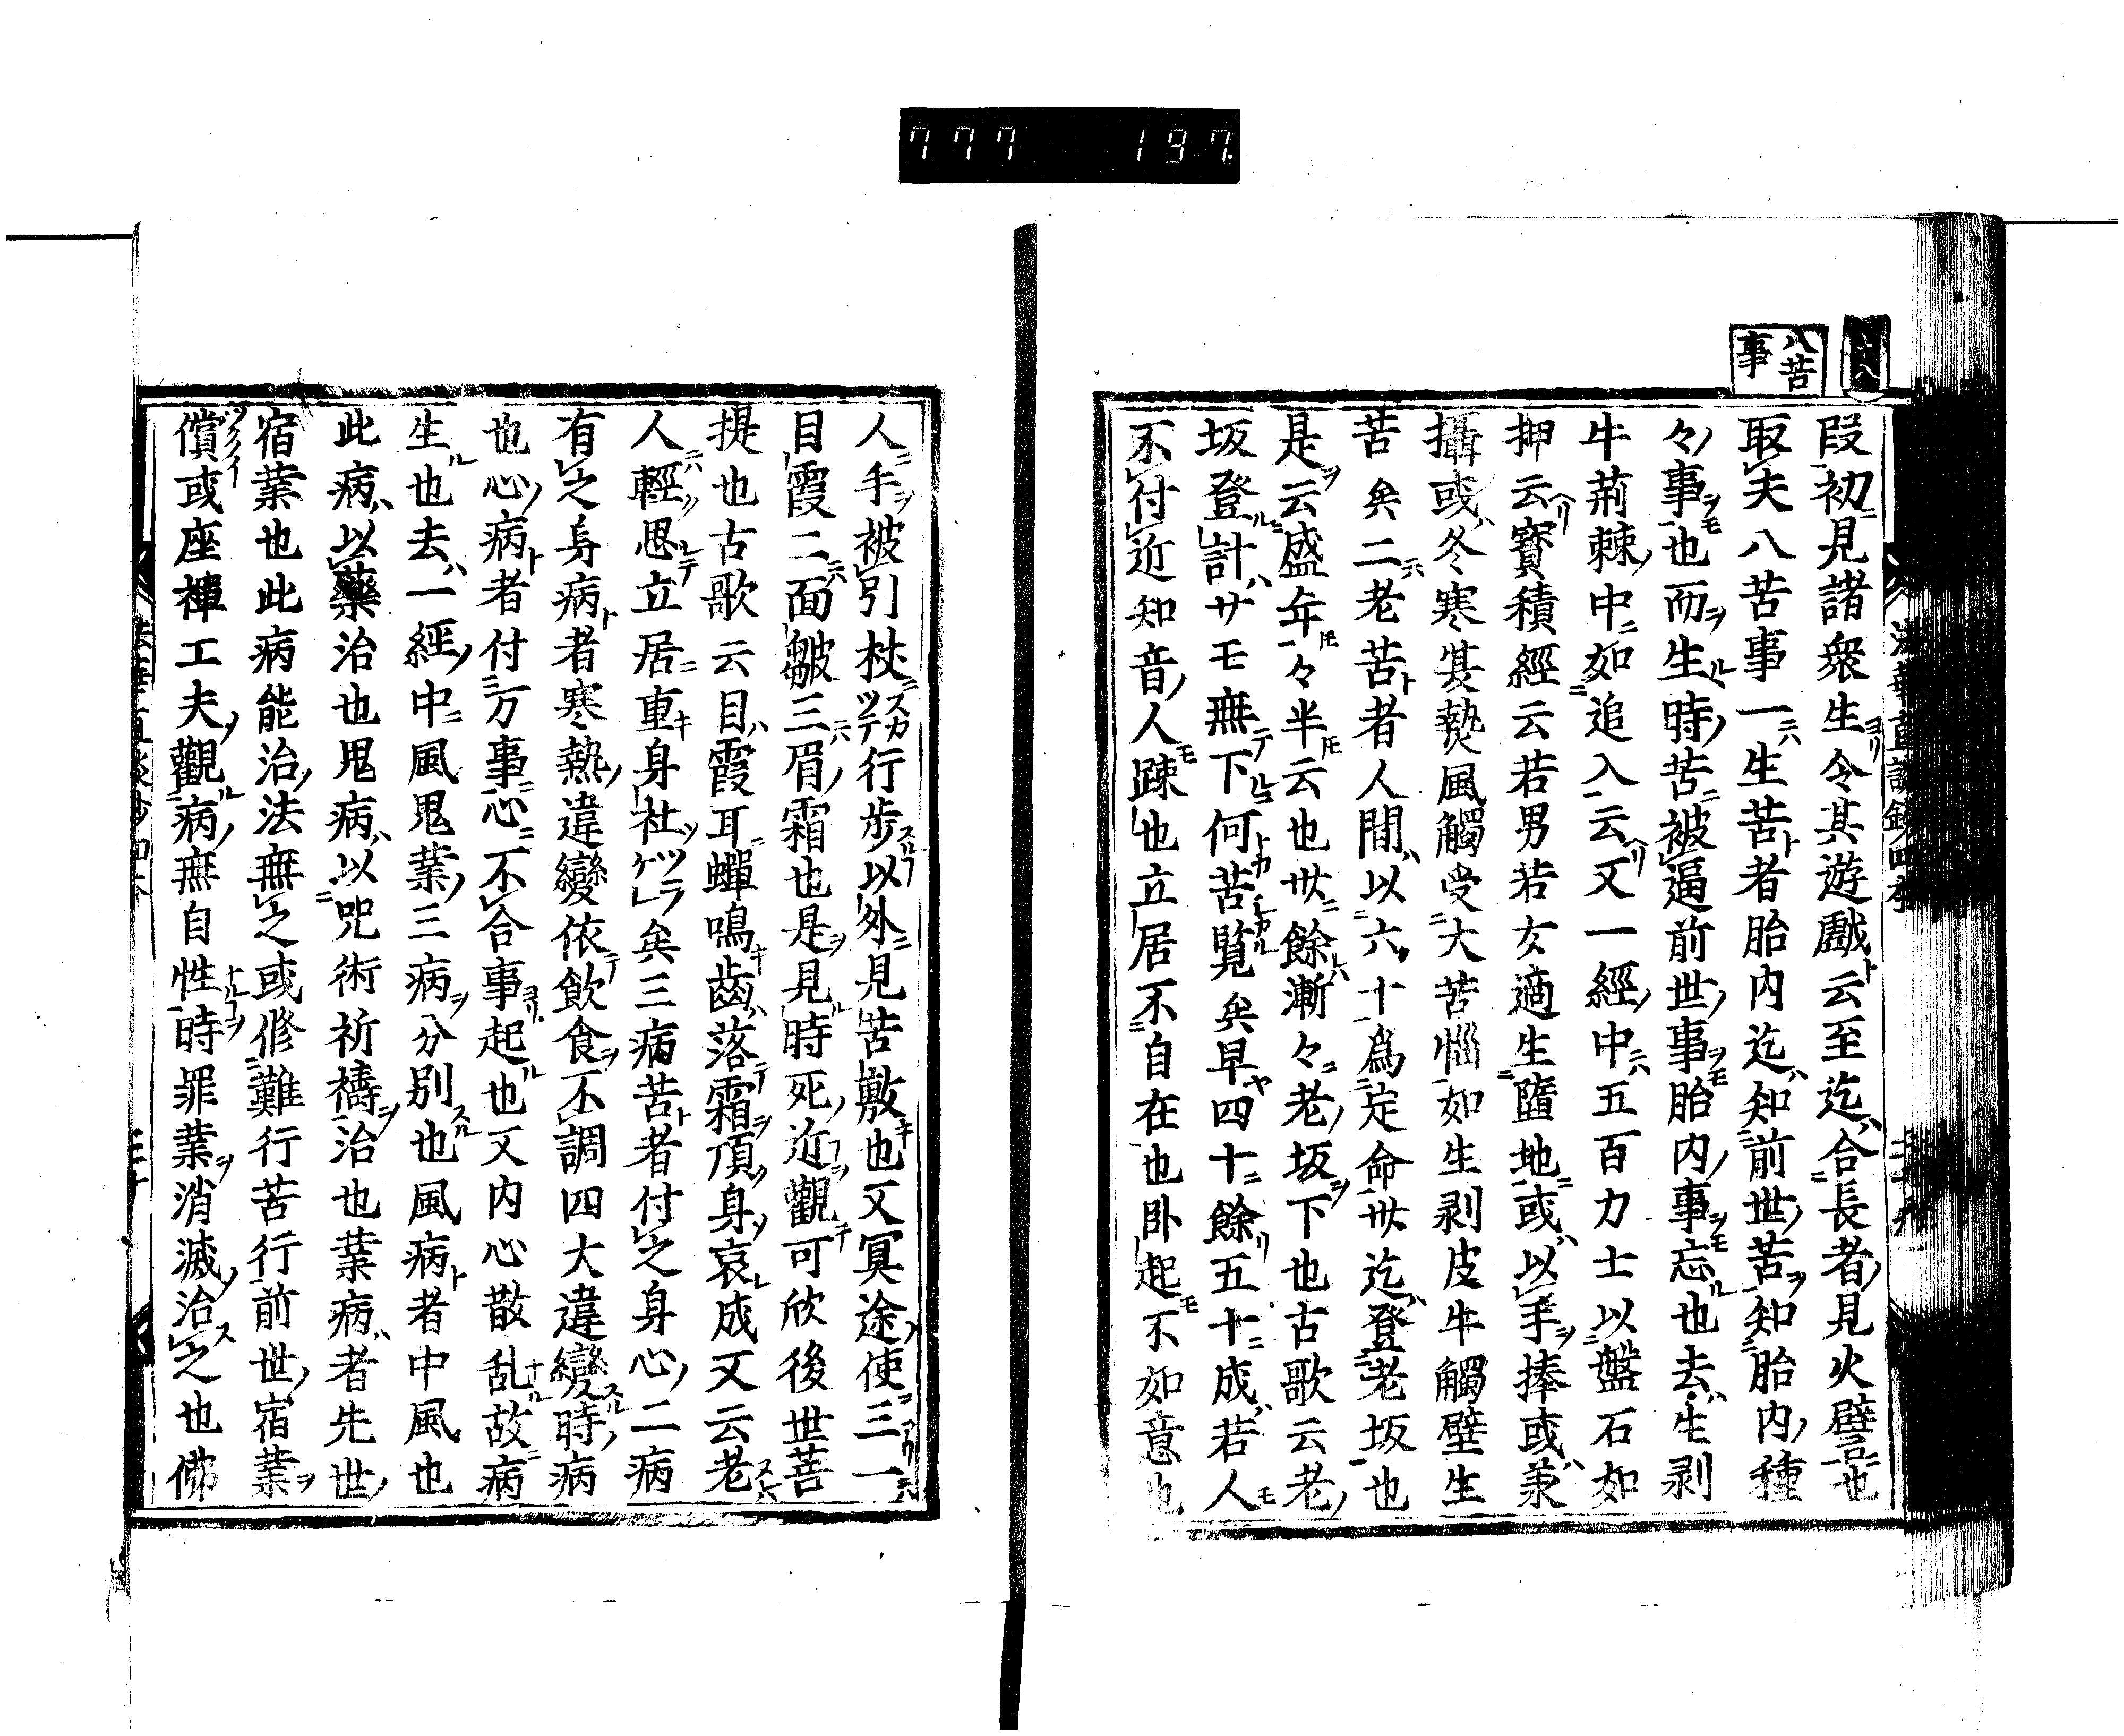 777 197
八苦事
段初見諸衆生令其遊戯云至迄合長者見火譬也
取夫八苦事一生苦者胎内迄知前世苦知胎内種
々事也而生時苦被逼前世事胎内事忘也去生剥
牛荊棘中如追入云又一經中五百力士以盤石如
押云寳積經云若男若女適生墮地或以手捧或兼
攝或冬寒其熱風觸受大苦惱如生剥皮牛觸壁生
苦矣二老苦者人間以六十爲定命丗迄登老坂也
是云盛年々半云也丗餘漸々老坂下也古歌云老
坂登計サモ無下何苦覧矣早四十餘五十成若人
不付近知音人踈也立居不自在也卧起不如意也
人手被引杖行歩以外見苦敷也又冥途使三一
目霞二面皺三眉霜也是見時死近觀可欣後世菩
提也古歌云目霞耳蟬鳴齒落霜頂身哀成又云老
人輕思立居重身社矣三病苦者付之身心二病
有之身病者寒熱違變依飲食不調四大違變時病
也心病者付万事心不合事起也又内心散乱故病
生也去一經中風鬼業三病分別也風病者中風也
此病以藥治也鬼病以咒術祈禱治也業病者先世
宿業也此病能治法無之或修難行苦行前世宿業
償或座禪工夫觀病無自性時罪業消滅治之也佛